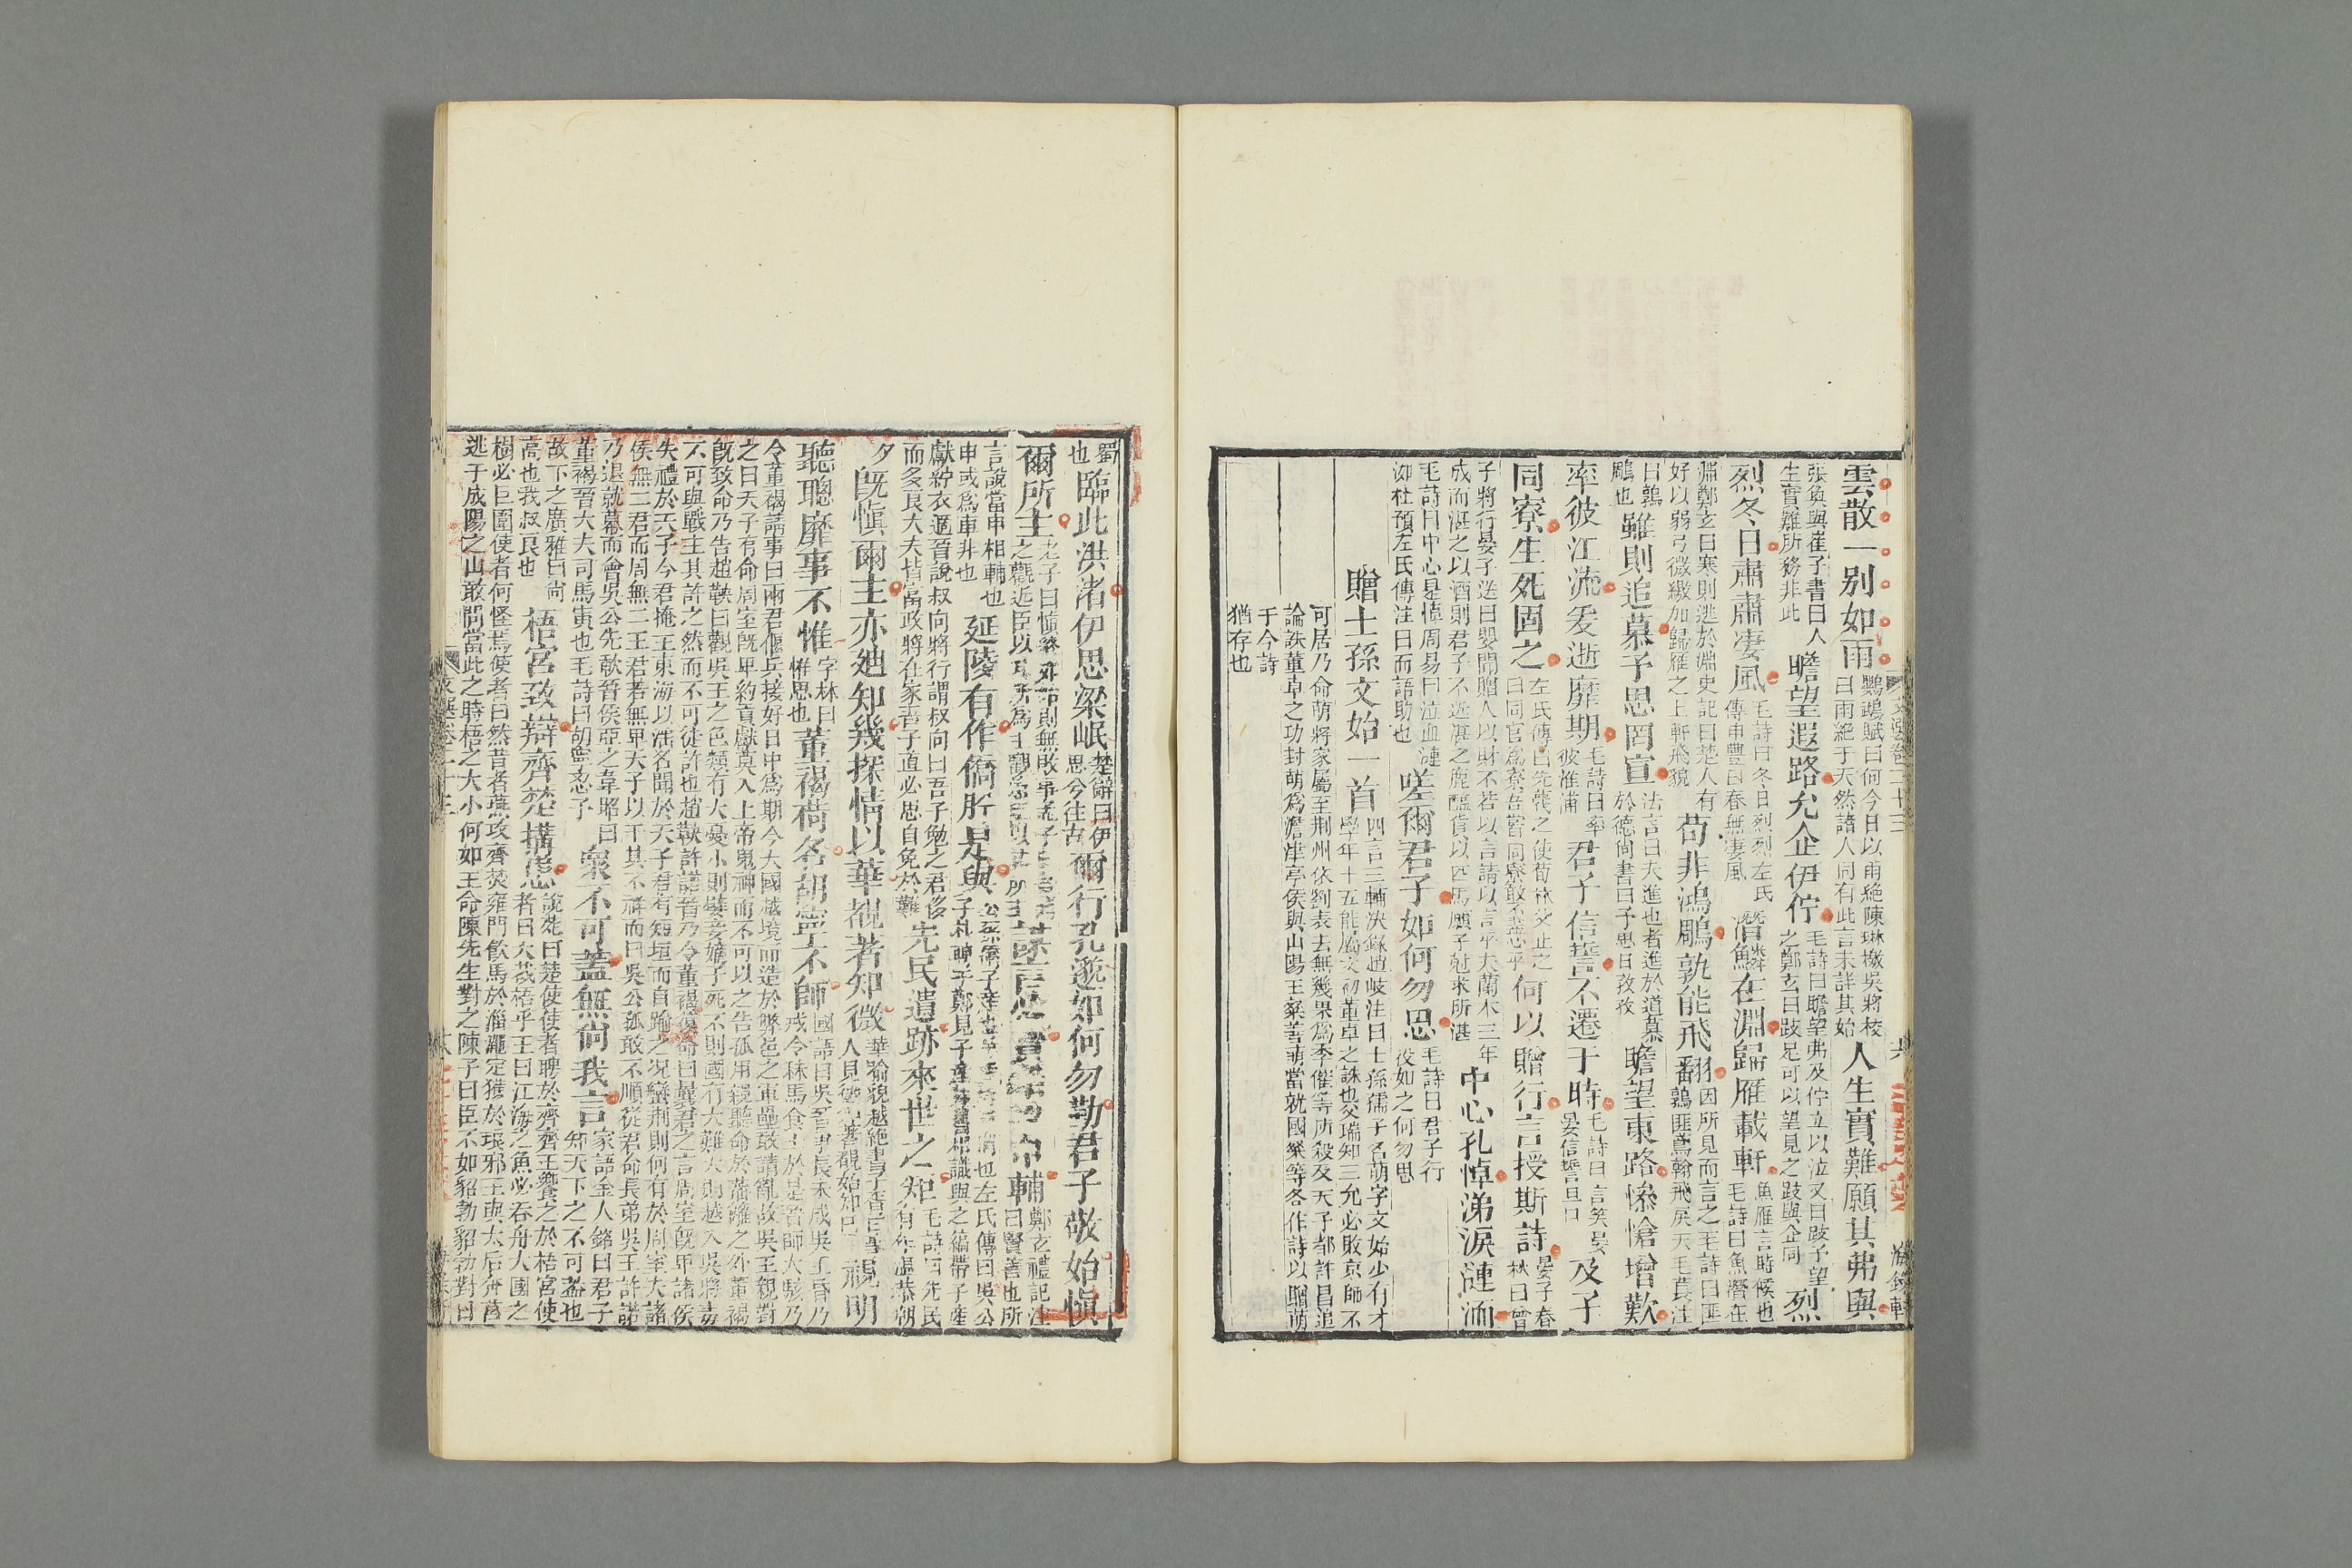 雲散一別如雨鸚鵡賦曰何今日以雨絶陳琳檄吳將校
曰雨絶于天然諸人同有此言未詳其始人生實難願其弗與
張奐與崔子書曰人
生實難所務非此瞻望遐路允企伊佇毛詩曰瞻望弗及佇立以泣又曰跂予望
之鄭玄曰跂足可以望見之跂與企同烈
烈冬日肅肅凄風毛詩曰冬日烈烈左氏
傳申豐曰春無凄風潛鱗在淵歸雁載軒魚雁言時候也
毛詩曰魚潛在
淵鄭玄曰寒則逃於淵史記曰楚人有
好以弱弓微繳加歸雁之上軒飛貌苟非鴻鵰孰能飛飜因所見而言之毛詩曰匪
鶉匪鳶翰飛戾天毛萇注
曰鶉
鵰也雖則追慕予思罔宣法言曰夫進也者進於道慕
於德尚書曰予思日孜孜瞻望東路慘愴增歎
率彼江流爰逝靡期毛詩曰率
彼淮浦君子信誓不遷于時毛詩曰言笑晏
晏信誓旦旦及子
同寮生死固之左氏傳曰先蔑之使荀林父止之
曰同官爲寮吾嘗同寮敢不盡心乎何以贈行言授斯詩晏子春
秋曰曾
子將行晏子送曰嬰聞贈人以財不若以言請以言乎夫蘭本三年
成而湛之以酒則君子不近湛之鹿醢貨以匹馬願子尅求所湛中心孔悼涕淚漣洏
毛詩曰中心是悼周易曰泣血漣
洳杜預左氏傳注曰而語助也嗟爾君子如何勿思毛詩曰君子行
役如之何勿思
贈士孫文始一首四言三輔决錄趙岐注曰士孫孺子名萌字文始少有才
學年十五能屬文初董卓之誅也父瑞知王允必敗京師不
可居乃命萌將家屬至荆州依劉表去無幾果爲李傕等所殺及天子都許昌追
論誅董卓之功封萌爲澹津亭侯與山陽王粲善萌當就國粲等各作詩以贈萌
于今詩
猶存也
文選卷二十三
海録軒
蜀
也臨此洪渚伊思梁岷楚辭曰伊
思今往古爾行孔邈如何勿勤君子敬始愼
爾所主老子曰愼終如始則無敗事
之觀近臣以其所爲主鄭玄禮記注
曰賢善也所
言說當申相輔也
申或爲車非也延陵有作僑肸是與左氏傳曰吳公
子札聘于鄭見子產如舊相識與之縞帶子產
獻紵衣適晉說叔向將行謂叔向曰吾子勉之君侈
而多良大夫皆富政將在家吾子直必思自免於難先民遺跡來世之矩毛詩曰先民
有作溫恭朝
夕旣愼爾主亦迪知幾探情以華覩著知微
人見微知著覩始知已視明
聽聰靡事不惟字林曰
惟思也董褐荷名胡寧不師國語曰吳晉爭長未成吳王昏乃
戒令秣馬食士於是晉師大駭乃
令董褐請事曰兩君偃兵接好日中爲期今大國越境而造於弊邑之軍壘敢請亂故吳王親對
之曰天子有命周室旣卑約貢獻莫入上帝鬼神而不可以之告孤用親聽命於藩籬之外董褐
旣致命乃告趙鞅曰觀吳王之色類有大憂小則嬖妾嫡子死不則國有大難大則越入吳將毒
不可與戰主其許之然而不可徒許也趙鞅許諾晉乃令董褐復命曰曩君之言周室旣卑諸侯
失禮於天子今君掩王東海以淫名聞於天子君有短垣而自踰之況蠻荆則何有於周室夫諸
侯無二君而周無二王君若無卑天子以干其不祥而曰吳公孤敢不順從君命長弟吳王許諾
乃退就幕而會吳公先歃晉侯亞之韋昭曰
董褐晉大夫司馬寅也毛詩曰胡寧忍予衆不可蓋無尚我言家語金人銘曰君子
知天下之不可蓋也
故下之廣雅曰尚
高也我叔良也梧宮致辯齊楚構患說苑曰楚使使者聘於齊齊王饗之於梧宮使
者曰大哉梧乎王曰江海之魚必吞舟大國之
樹必巨圍使者何怪焉使者曰然昔者燕攻齊焚雍門飲馬於淄澠定獲於琅邪王與太后奔莒
逃于成陽之山敢問當此之時梧之大小何如王命陳先生對之陳子曰臣不如貂勃貂勃對曰